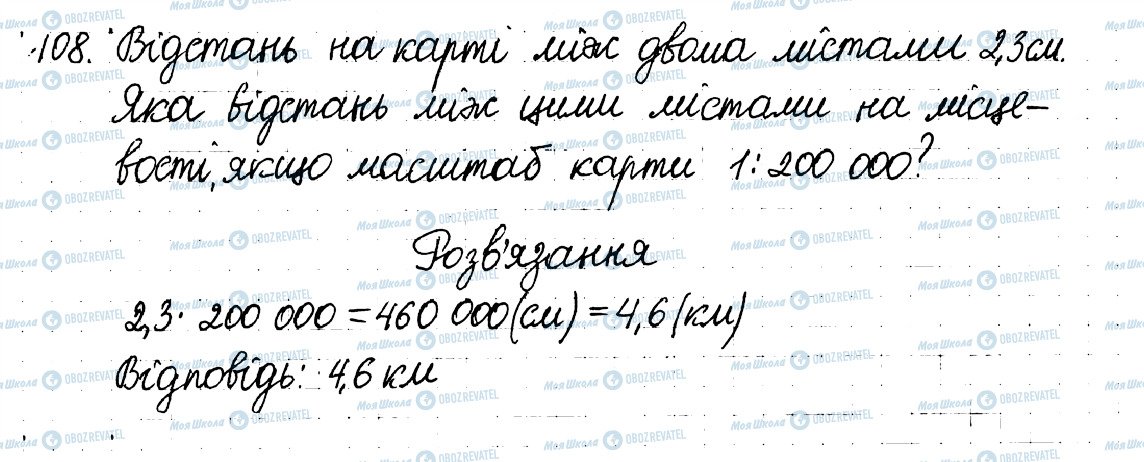 108. Відстань на карті між двома містами 2,3 см.
Яка відстань між цими містами на місце-
вості, якщо масштаб карти 1:200 000?
Розв'язання
2,3 · 200 000 = 460 000 (см) = 4,6 (км)
Відповідь: 4,6 км